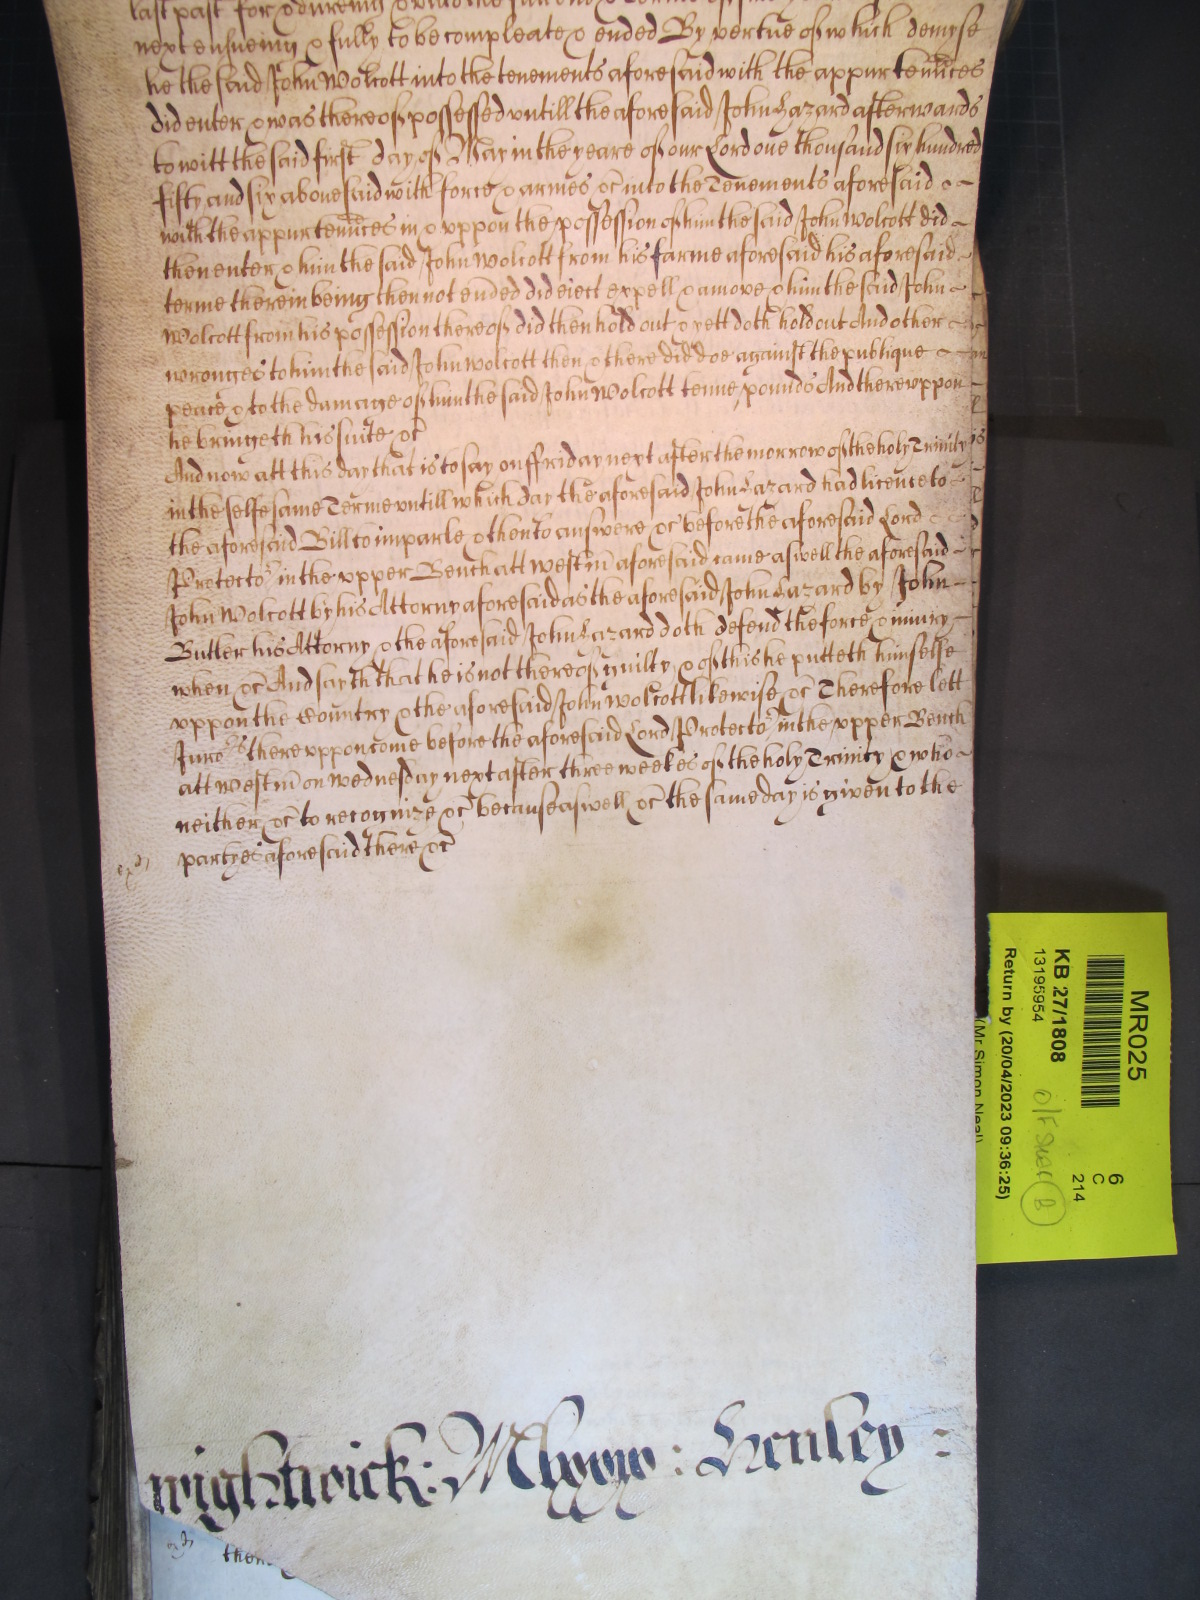 last past for & dureing & untill the full end & terme of
next ensueing & fully to be compleate & ended By vertue of which demyse
he the said John Wolcott into the tenements aforesaid with the appurtennces
did enter & was thereof possessed untill the aforesaid John Hazard afterwards
to witt the said first day of May in the yeare of our Lord one thousand six hundred
fifty and six abovesaid with force & armes &c into the Tenements aforesaid
with the appurtennces in & uppon the possession of him the said John Wolcott did
then enter & him the said John Wolcott from his farme aforesaid his aforesaid
terme therein being then not ended did eiect expell & amove & him the said John
Wolcott from his possession thereof did then hold out & yett doth hold out And other
wronges to him the said John Wolcott then & there did doe against the publique
peace & to the damage of him the said John Wolcott tenne pounds And thereuppon
he bringeth his suite &c
And now att this day that is to say on ffriday next after the morrow of the holy Trinity
in the selfe same Terme untill which day the aforesaid John Hazard had licence to
the aforesaid Bill to imparle & then to answere &c before the aforesaid Lord
Protector in the upper Bench att Westm aforesaid came aswell the aforesaid
John Wolcott by his Attorny aforesaid as the aforesaid John Hazard by John
Butler his Attorny & the aforesaid John Hazard doth defend the force & iniury
when &c And sayth that he is not thereof guilty & of this he putteth himselfe
uppon the Country & the aforesaid John Wolcott likewise &c Therefore lett
Jurors thereuppon come before the aforesaid Lord Protector in the upper Bench
att Westm on Wednesday next after three weekes of the holy Trinity & who
neither &c to recognize &c because aswell &c the same day is given to the
partyes aforesaid there &c
Wightwick : Mlxxx : Henley
MR025
6
C
214
KB 27/1808
13195954
Return by (20/04/2023 09:36:25)
(Mr Simon Neal)